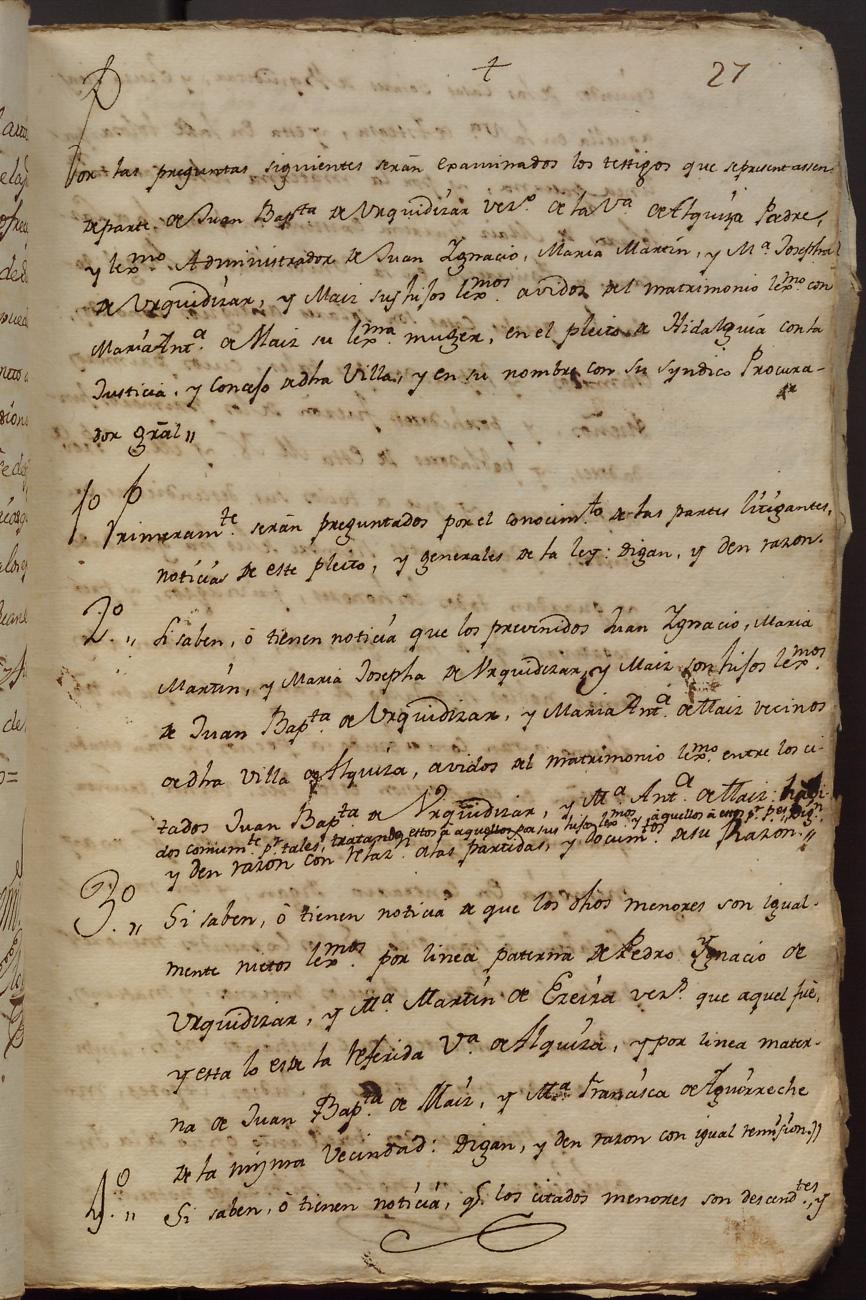 + 27
Por las preguntas siguientes serán examinados los testigos que sepresentassen
departe de Juan Bapta de Urquidizar vezo de la Va de Alquiza Padre,
y lexmo Administrador de Juan Ygnacio, Maria Martin, y Ma Josepha
de Urquidizar, y Maiz sus hijos lexmos avidos del matrimonio lexmo con
Maria Anta de Maiz su lexma muger, en el pleito de Hidalguia con la
Justicia, y Concejo de dha Villa, y en su nombre con su syndico Procura-
dor gral,,
1o Primeramte serán preguntados por el conocimto de las partes litigantes,
noticias de este pleito, y generales de la ley: digan, y den razon.
2o,, Si saben, ò tienen noticia que los prevenidos Juan Ygnacio, Maria
Martin, y Maria Josepha de Urquidizar, y Maiz son hijos lexmos
de Juan Bapta de Urquidizar, y Maria Anta de Maiz vecinos
de dha Villa de Alquiza, avidos del matrimonio lexmo entre los ci-
tados Juan Bapta de Urquidizar, y Ma Anta de Maiz:
dos comunmte pr tales, tratando estos à aquellos por sus hijos lexmos y aquellos à estos pr
y den razon con relazn a las partidas, y documtos de su Razon.,,
3o,, Si saben, ò tienen noticia de que los dhos menores son igual-
mente nietos lexmos por linea paterna de Pedro Ygnacio de
Urquidizar, y Ma Martin de Ezeiza vezs que aquel fué,
y esta lo es de la referida Va de Alquiza, y por linea mater-
na de Juan Bapta de Maiz, y Ma Francisca de Aguirreche
de la misma Vecindad: digan, y den razon con igual remision.,,
4o,, Si saben, ò tienen noticia, q. los citados menores son descendtes, y